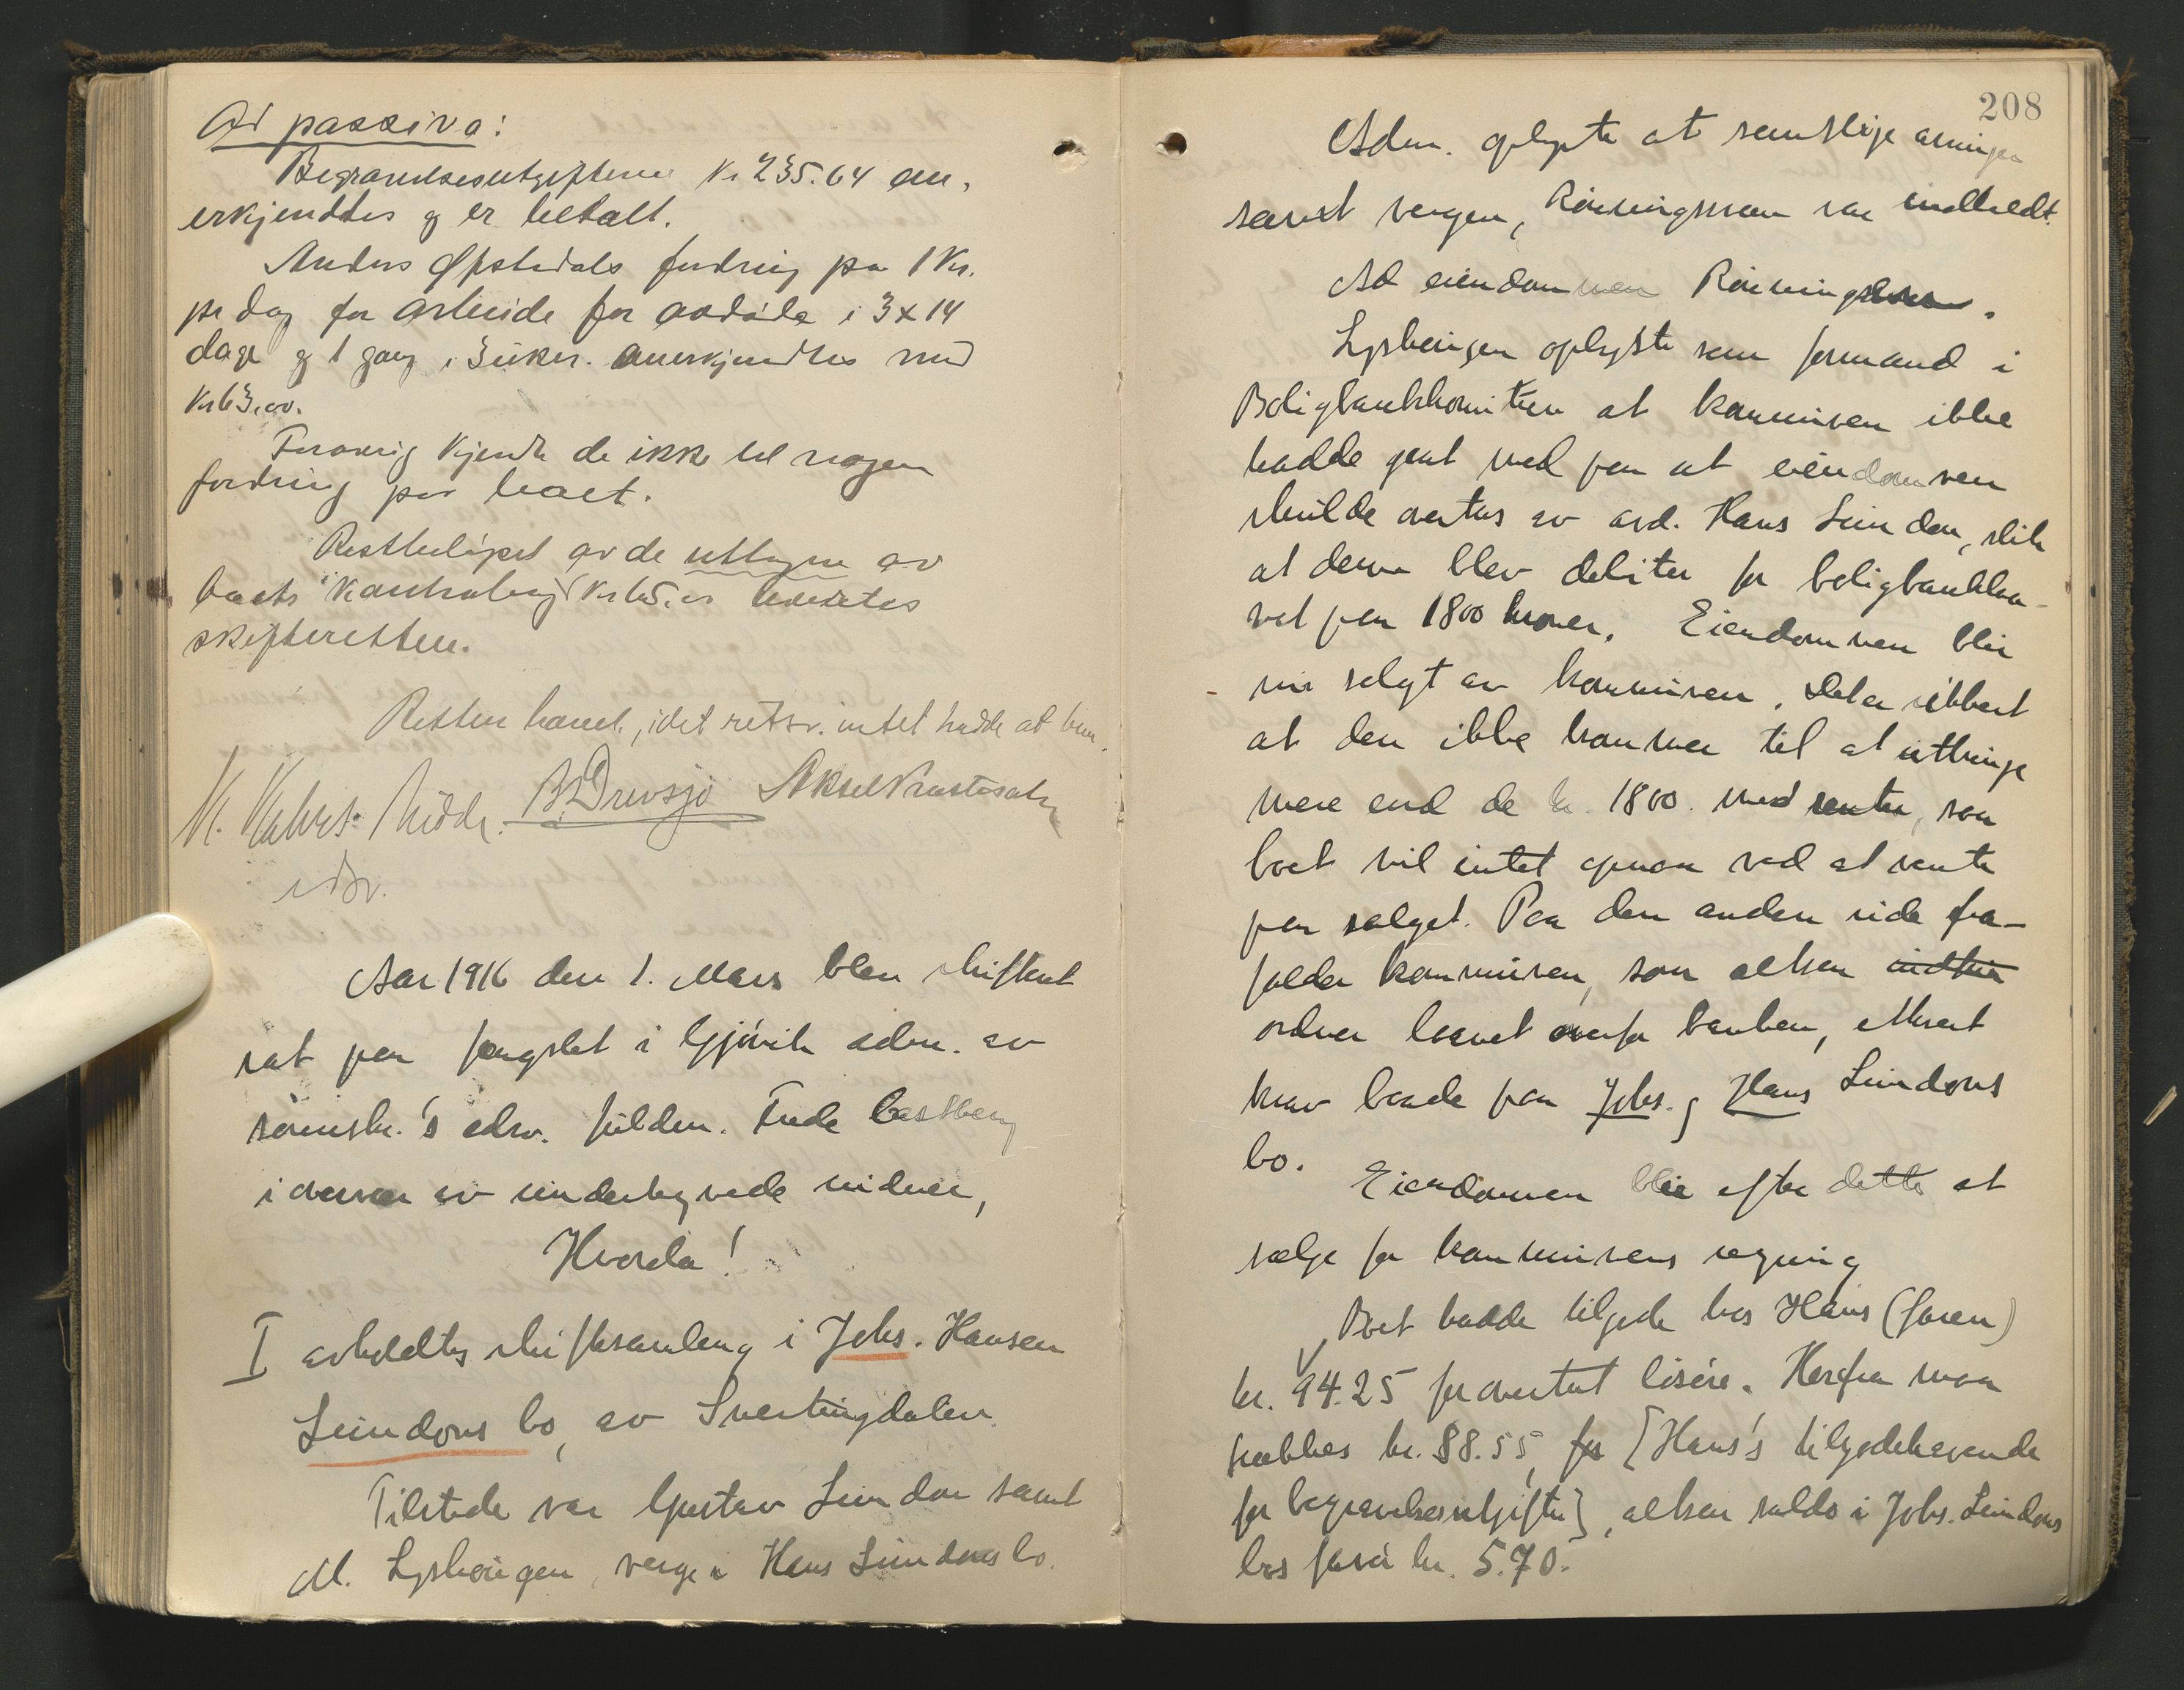 Ad passiva:
Begravelsesutgifterne Kr 235.64 an-
erkjendtes og er betalt.
Anders Øpstedals fordring pa 1 Kr.
pr dag for arbeide for avdøde i 3 x 14
dage og 1 gang i 3 uker. Anerkjendtes med
Kr 63.00.
Forøvrig kjendte de ikke til nogen
fordring paa boet.
Restbeløpet av de uttagne av
boets Kr 65.00 leveretes
skifteretten.
Retten hævet, idet retsv. intet hadde at bem.
B. Drevsjø Aksel
Aar 1916 den 1. Mars blev skifteret
sat paa fængslet i Gjøvik adm. av
sorenskr.'s edsv. fuldm. Frede Castberg
i overvær av undertegnede vidner,
Hvorda!
I avholdtes skiftesamling i Johs. Hansen
Lundons bo, av Snertingdalen.
Tilstede var Gustav Lundon samt
M. Lyshaugen, verge i Hans Lundons bo.
208
Adm. oplyste at samtlige arvinger
samt vergen, Rønningsveen var indkaldt.
Ad eiendommen Rønningen.
Lyshaugen oplyste som formand i
Boligbankkomiteen at kommunen ikke
hadde gaat med paa at eiendommen
skulde overtas av avd. Hans Lundon, slik
at denne blev debitor for boligbanklaa-
net paa 1800 kroner. Eiendommen blir
nu solgt av kommunen. Det er sikkert
at den ikke kommer til at utbringe
mere end de kr. 1800. med renter, saa
boet vil intet opnaa ved at vente
paa salget. Paa den anden side fra-
falder kommunen, som altsaa
ordner laanet overfor banken, ethvert
krav baade paa Johs. og Hans Lundons
bo.
Eiendommen blir efter dette at
sælge for kommunens regning
Boet hadde tilgode hos Hans (faren)
kr. 94.25 for overtat løsøre. Herfra maa
trækkes kr. 88.55, for [Hans's tilgodehavende
for begravelsesutgifter], altsaa saldo i Johs. Lundons
bos favør kr. 5.70.